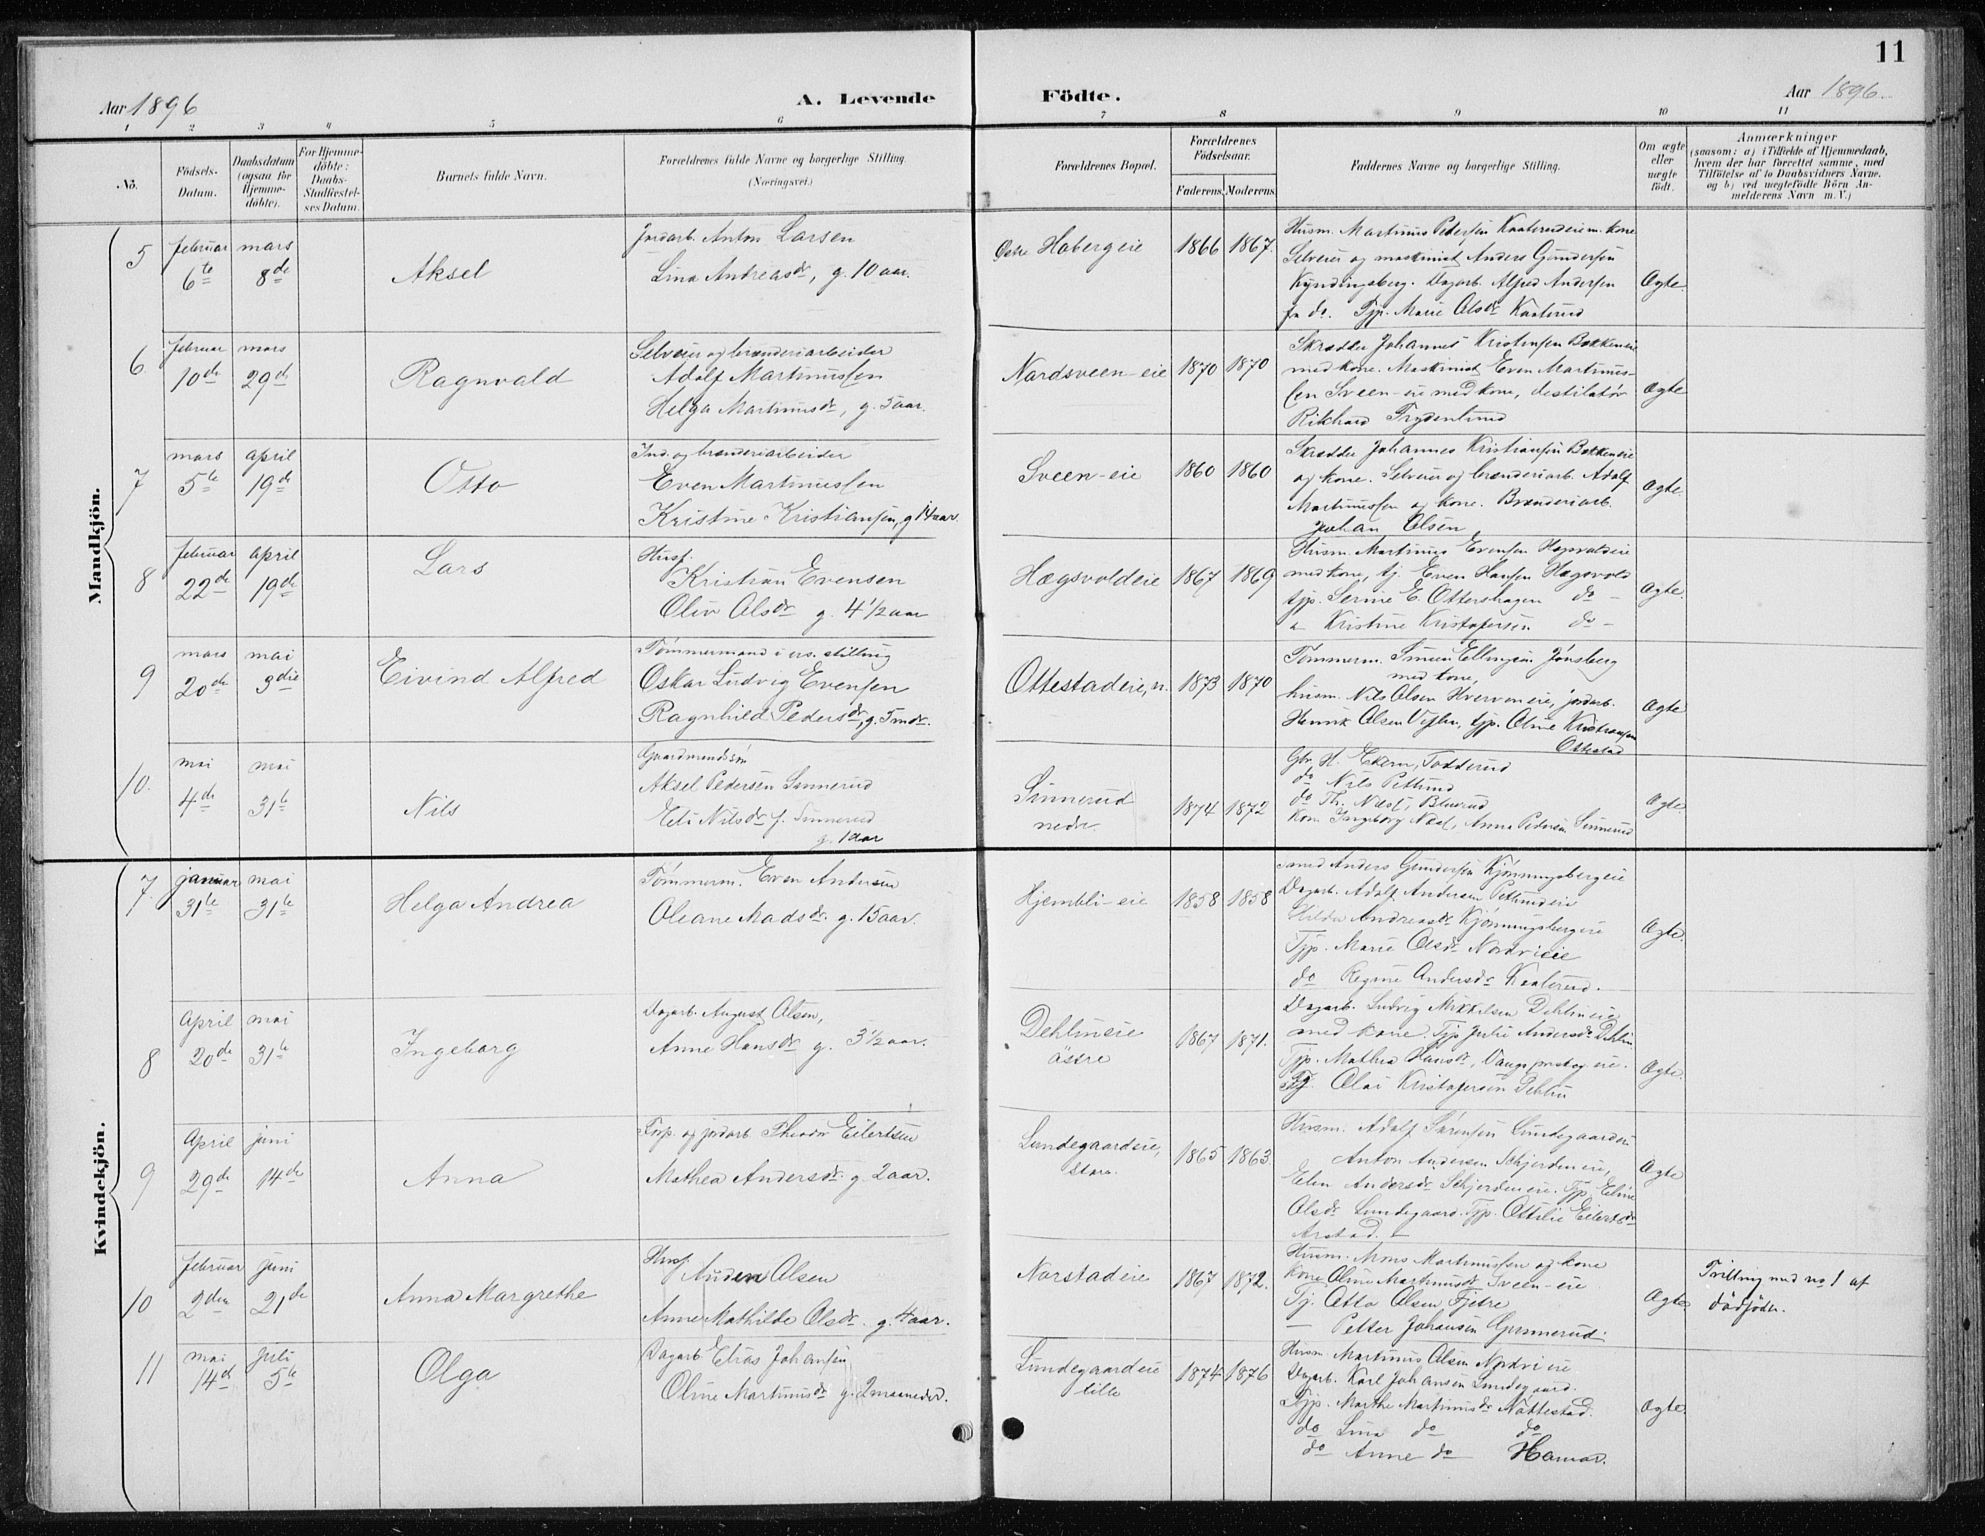 11
Aar 1896
A. Levende
Födte.
Aar 1896.
1 2 3 4 5 6 7 8 9 10 11
Nö.
Födsels-
Datum.
Daabsdatum
(ogsaa for
Hjemme-
döbte).
For Hjemme-
döbte:
Daabs-
Stadfæstel-
ses Datum.
Barnets fulde Navn.
Forældrenes fulde Navne og borgerlige Stilling.
(Næringsvei.)
Forældrenes Bopæl.
Forældrenes
Födselsaar.
Faderens. Moderens.
Faddernes Navne og borgerlige Stilling.
Om ægte
eller
uægte
födt.
Anmærkninger
(saasom: a) i Tilfælde af Hjemmedaab,
hvem der har forrettet samme, med
Tilföielse af to Daabsvidners Navne,
og b) ved uægtefödte Börn An-
melderens Navn m. V.)
Mandkjön.
5
februar
6te
mars
8de
Aksel
Jordarb. Anton Larsen
Lina Andreasdr, g. 10 aar.
Østre Habergeie
1866 1867.
Husm. Martinus Pedersen Kaaterudeie m. kone
Selveier og maskinist Anders Gundersen
Kyndingsberg. Dagarb. Alfred Andersen
fra do. Tjp. Marie Olsdr Kaaterud
Ægte.
6
februar
10de
mars
29de
Ragnvald
Selveier og brænderiarbeider
Adolf Martinussen
Helga Martinusdr, g. 5 aar.
Nordsveen-eie
1870 1870
Skrædder Johannes Kristiansen Bakkeneie
med kone. Maskinist Even Martinus-
sen Sveen-eie med kone, destilatør
Rikhard Frydenlund
Ægte
7
mars
5te
april
19de
Otto
Ind. og brænderiarbeider
Even Martinussen
Kristine Kristiansen, g. 14 aar.
Sveen-eie
1860 1860
Skrædder Johannes Kristiansen Bakkeneie
og kone. Selveier og brænderiarb. Adolf
Martinussen og kone. Brænderiarb.
Johan Olsen
Ægte.
8
februar
22de
april
19de
Lars
Husf.
Kristian Evensen
Oliv Olsdr g. 4 1/2 aar
Hægsvoldeie
1867 1869
Husm. Martinus Evensen Hagsvoldeie
med kone, tj. Even Hansen Hægsvold
tjp. Serine E. Ottershagen do -
" Kristine Kristofersen do -
Ægte.
9
mars
20de
mai
3die
Eivind Alfred
Tømmermand i urs. stilling
Oskar Ludvig Evensen
Ragnhild Pedersdr, g. 5 mdr.
Ottestadeie, n.
1873 1870
Tømmerm. Simen Ellingsen Jønsberg
med kone,
husm. Nils Olsen Hvervoneie, jordarb.
Henrik Olsen, tjp. Oline Kristiansen
Ottestad
Ægte
10.
mai
4de
mai
31te
Nils
Gaardmandssøn
Aksel Pedersen Sinnerud
Eli Nilsdr f. Sinnerud
g. 1 aar
Sinnerud
nedre.
1874 1872
Gbr. H. Ekern, Todderud
do Nils Pettund
do Th. Næss, Bleurud
Kone Ingeborg Næss, Anna Pedersen Sinnerud
Ægte.
Kvindekjön.
7
januar
31te
mai
31te
Helga Andrea
Tømmerm. Even Andersen
Oleane Madsdr. g. 15 aar.
Hjembli-eie
1858 1858
Smed Anders Gundersen Kjønningsbergeie
Dagarb. Adolf Andersen Pettundeie
Hilda Andreasdr Kjønningsbergeie
Tjp. Marie Olsdr Nordvieie
do Regine Andersdr Kaaterud.
Ægte.
8
April
20de
mai
31te
Ingeborg
Dagarb. August Olsen,
Anne Hansdr g. 3 1/2 aar.
Dehlineie
østre
1867 1871.
Dagarb. Ludvig Mikkelsen Dehlineie
med kone. Tjp Julie Andersdr Dehlin
Tjp. Mathea Hansdr, Vangs prestog. eie.
Tj. Olai Kristofersen Dehlin
Ægte.
9
April
29de
juni
14de
Anna
Torp. og jordarb. Theodor Eilertsen
Mathea Andersdr. g 2 aar.
Lundegaardeie,
store.
1865 1863
Husm. Adolf Sørensen Lundegaardeie
Anton Andersen Schjerdeneie,
Elen Andersdr Schjerdeneie. Tjp. Eline
Olsdr Lundegaard. Tjp. Ottilie Eilertsdr
Arstad.
Ægte
10
februar
2den
juni
21de
Anna Margrethe
Husf.
Auden Olsen
Anne Mathilde Olsdr. g. 4 aar.
Norstadeie
1867 1872.
Husm. Mons Martinussen og kone
kone Oline Martinusdr Sveen-eie
Tj. Otto Olsen Fjetre
— Petter Johansen Gunnerud.
Ægte
Tvilling med no 1 af
dødfødte.
11
mai
14de
juli
5te
Olga
Dagarb. Elias Johansen
Oline Martinusdr g. 2 maaneder.
Lundegaardeie
lille
1874 1876
Husm. Martinus Olsen Nordvieie
Dagarb. Karl Johansen Lundegaard.
Tjp. Marthe Martinusdr Nøttestad.
do Lina do do
do Anne do Hamar.
Ægte.